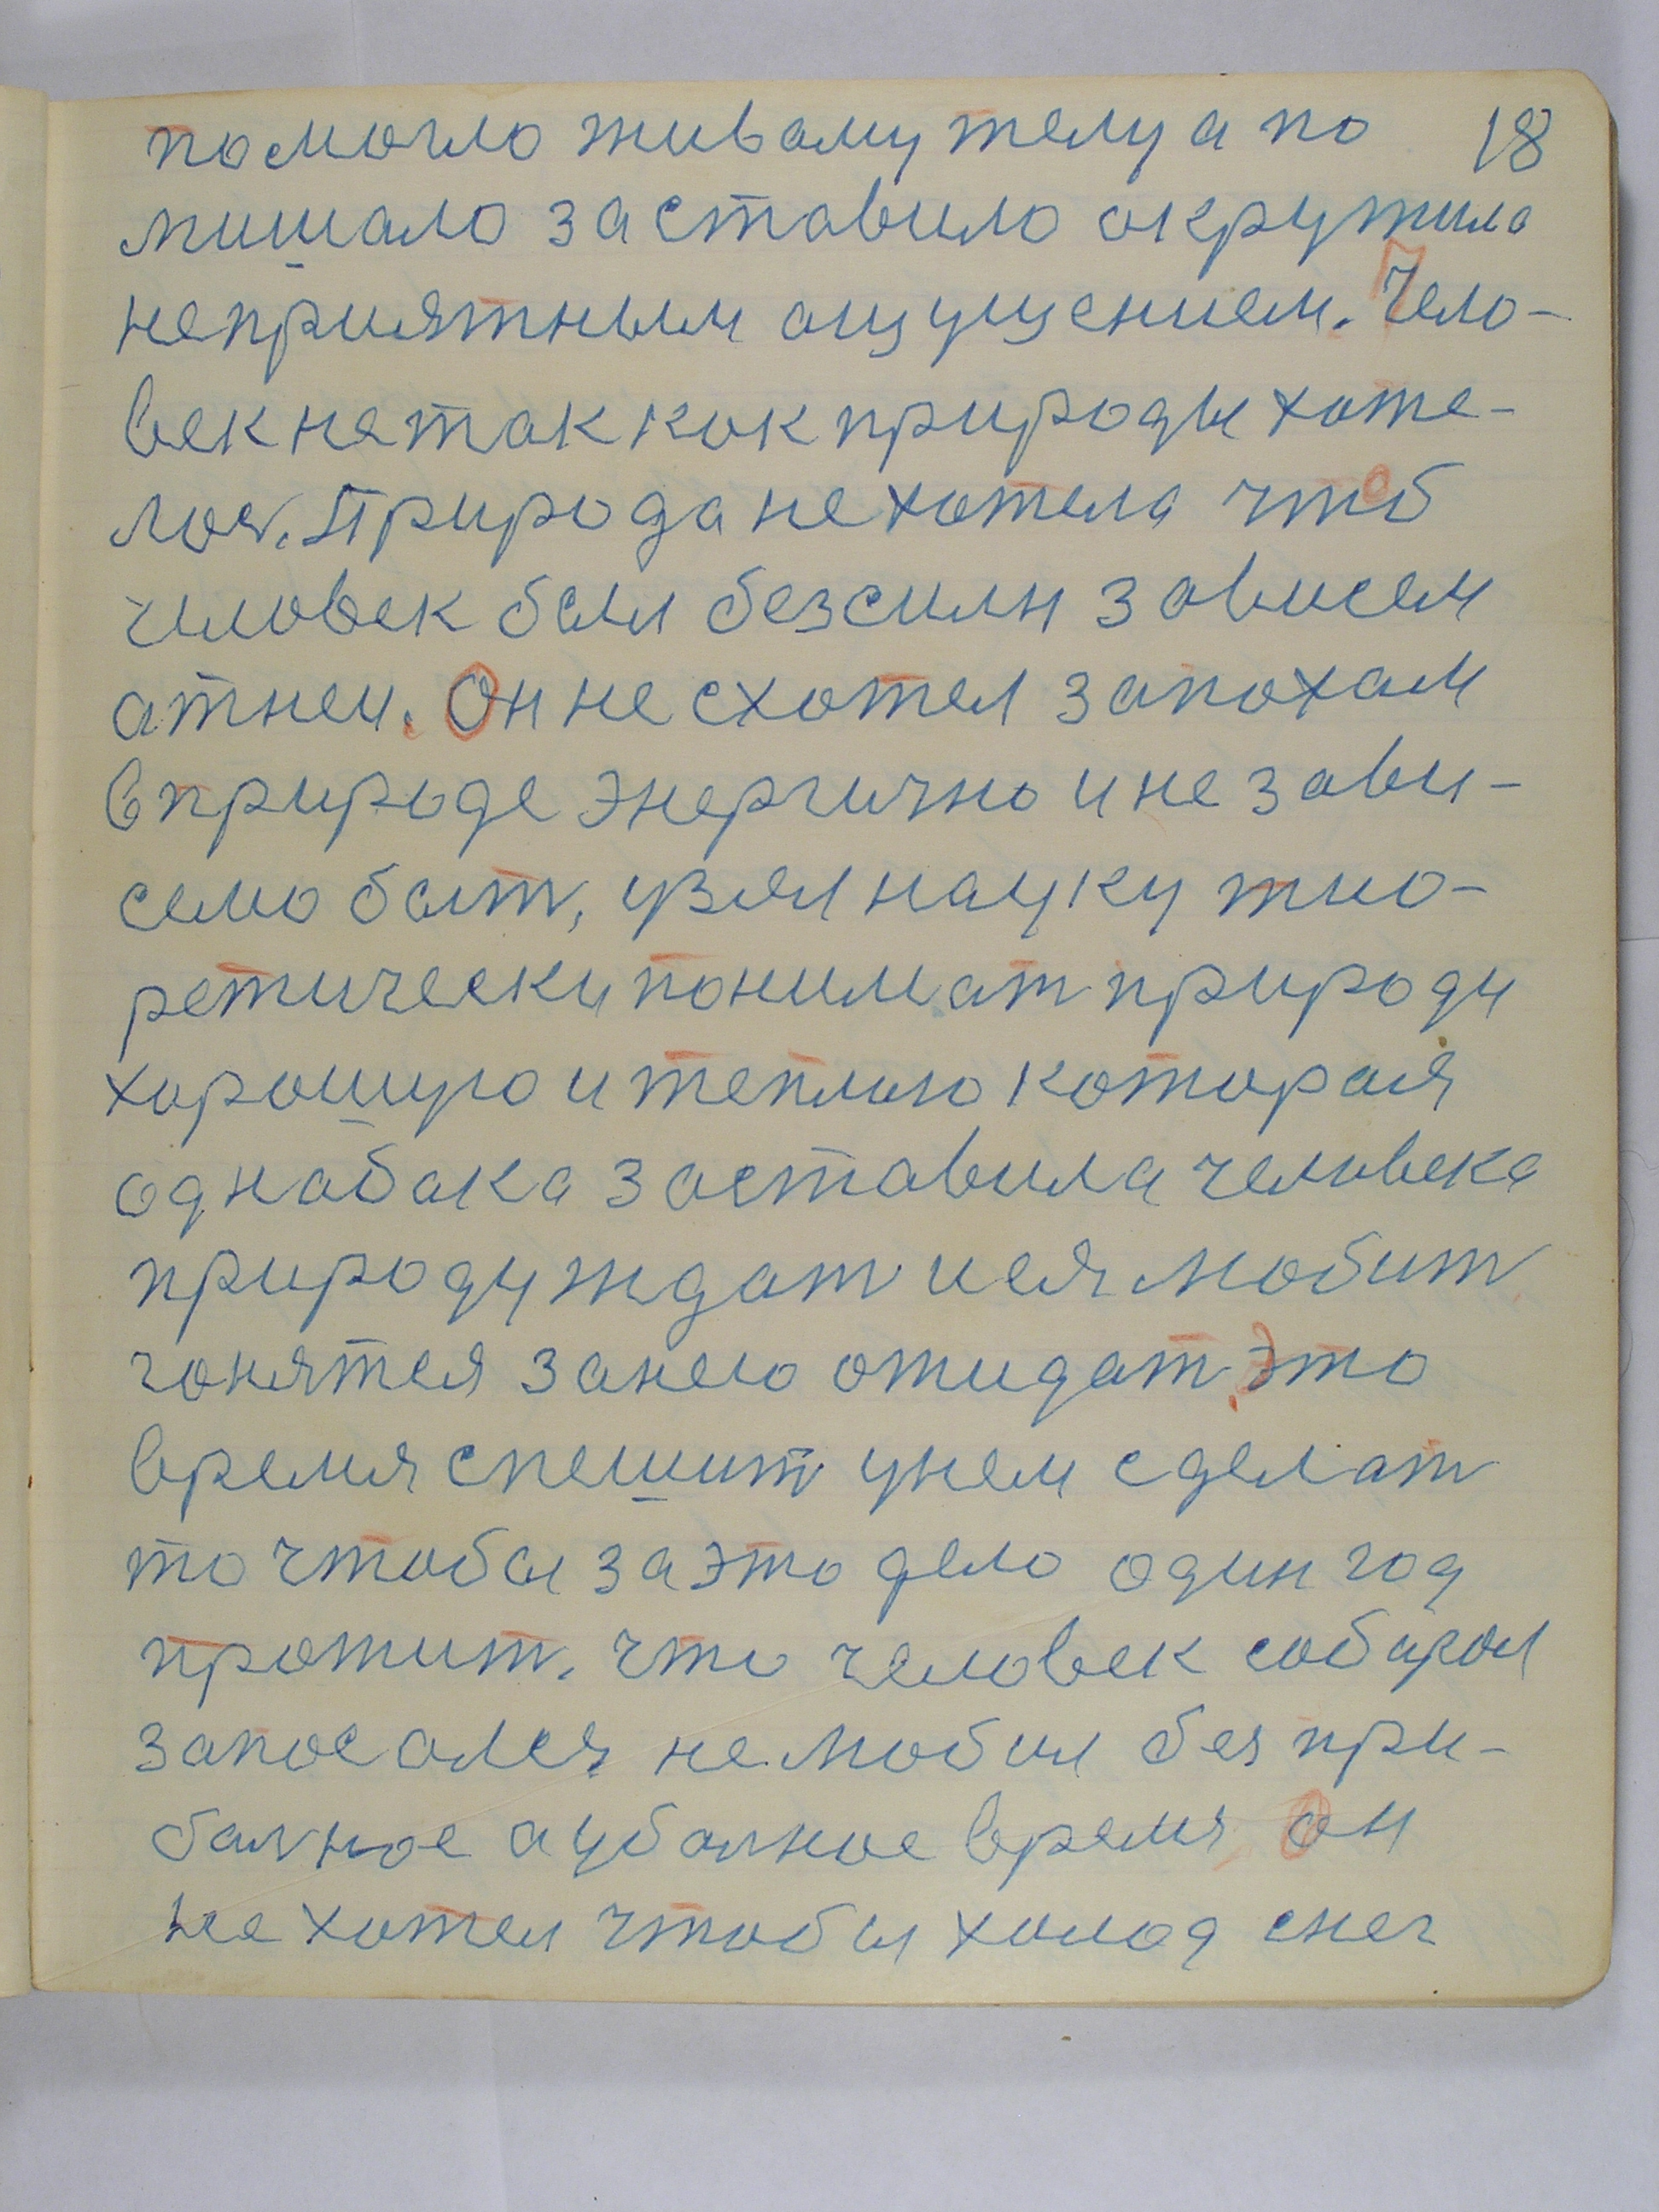 помогло живому телу а по 18
мишало заставило окружила
неприятным ощущением. Чело-
век не так как природы хоте-
лос. Природа не хотела чтоб
человек был безсилн зависем
атнеи. Он не схотел запохам
в природе энергично и не зави-
семо быт, узял науку тио-
ретически понимат природу
хорошую и теплыю которая
однабака заставила человека
природу ждат и ея любит
гонятся занею ожидат. Это
время спешит унем сделат
то чтобы за это дело один год
прожит. Что человек собарал
запосался не любил без при-
балное а убалное время, он
не хотел чтобы холод снег